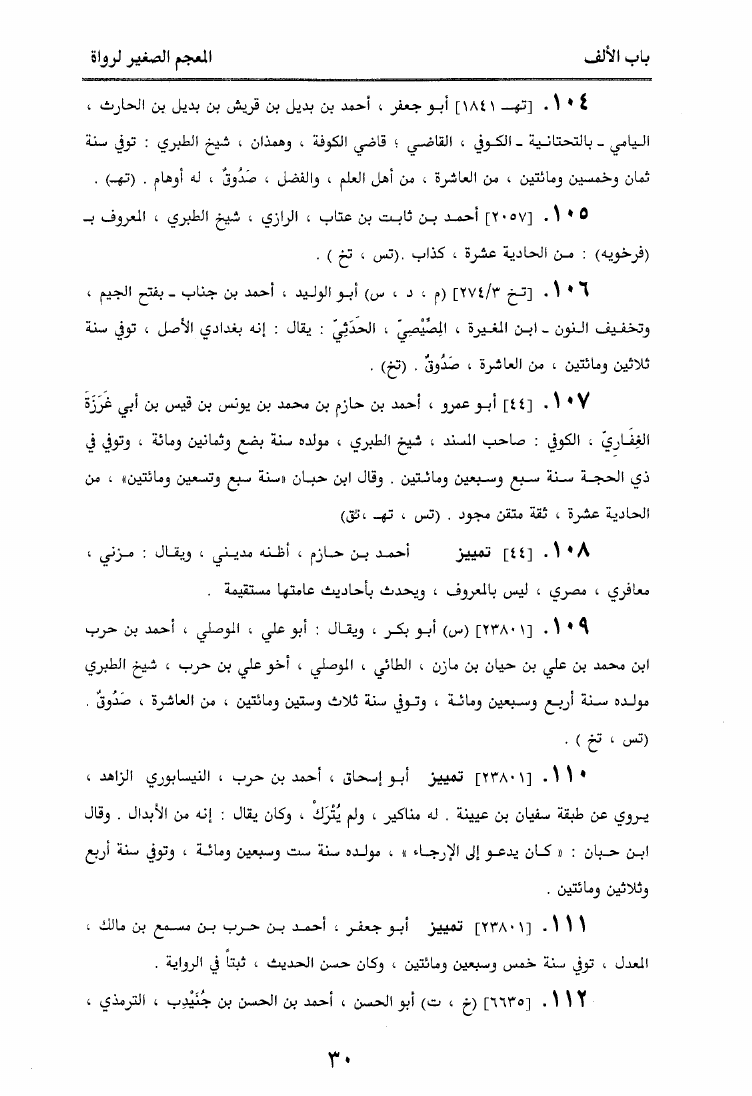 باب الألف
المعجم الصغير لرواة
١٠٤. [تهـ ١٨٤١] أبو جعفر ، أحمد بن بديل بن قريش بن بديل بن الحارث ،
اليامي - بالتحتانية - الكوفي ، القاضي ؛ قاضي الكوفة ، وهمذان ، شيخ الطبري : توفي سنة
ثمان وخمسين ومائتين ، من العاشرة ، من أهل العلم ، والفضل ، صَدُوقٌ ، له أوهام . (تهـ) .
١٠٥. [٢٠٥٧] أحمد بن ثابت بن عتاب ، الرازي ، شيخ الطبري ، المعروف بـ
(فرخويه) : من الحادية عشرة ، كذاب .(تس ، تخ ) .
١٠٦. [تخ ٢٧٤/٣] (م ، د ، س) أبو الوليد ، أحمد بن جناب - بفتح الجيم ،
وتخفيف النون - ابن المغيرة ، المِصِّيْصِيّ ، الحَدَثِيّ : يقال : إنه بغدادي الأصل ، توفي سنة
ثلاثين ومائتين ، من العاشرة ، صَدُوقٌ . (تخ) .
١٠٧. [٤٤] أبو عمرو ، أحمد بن حازم بن محمد بن يونس بن قيس بن أبي غَرَزَةَ
الغِفَارِيّ ، الكوفي : صاحب المسند ، شيخ الطبري ، مولده سنة بضع وثمانين ومائة ، وتوفي في
ذي الحجة سنة سبع وسبعين ومائتين . وقال ابن حبان «سنة سبع وتسعين ومائتين» ، من
الحادية عشرة ، ثقة متقن مجود . (تس ، تهـ ،تق)
١٠٨. [٤٤] تمييز أحمد بن حازم ، أظنه مديني ، ويقال : مزني ،
معافري ، مصري ، ليس بالمعروف ، ويحدث بأحاديث عامتها مستقيمة .
١٠٩. [٢٣٨٠١] (س) أبو بكر ، ويقال : أبو علي ، الموصلي ، أحمد بن حرب
ابن محمد بن علي بن حيان بن مازن ، الطائي ، الموصلي ، أخو علي بن حرب ، شيخ الطبري
مولده سنة أربع وسبعين ومائة ، وتوفي سنة ثلاث وستين ومائتين ، من العاشرة ، صَدُوقٌ .
(تس ، تخ ) .
١١٠. [٢٣٨٠١] تمييز أبو إسحاق ، أحمد بن حرب ، النيسابوري الزاهد ،
يروي عن طبقة سفيان بن عيينة . له مناكير ، ولم يُتْرَكْ ، وكان يقال : إنه من الأبدال . وقال
ابن حبان : « كان يدعو إلى الإرجاء » ، مولده سنة ست وسبعين ومائة ، وتوفي سنة أربع
وثلاثين ومائتين .
١١١. [٢٣٨٠١] تمييز أبو جعفر ، أحمد بن حرب بن مسمع بن مالك ،
المعدل ، توفي سنة خمس وسبعين ومائتين ، وكان حسن الحديث ، ثبتاً في الرواية .
١١٢. [٦٦٣٥] (خ ، ت) أبو الحسن ، أحمد بن الحسن بن جُنَيْدِب ، الترمذي ،
٣٠